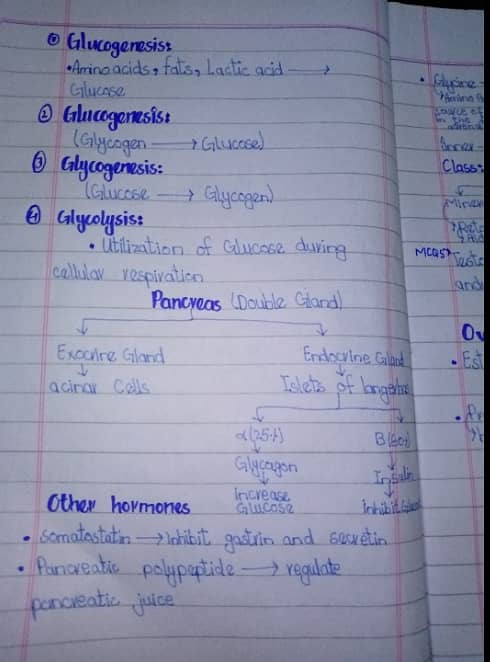 ① Glucogenesis:
• Amino acids, fats, Lactic acid →
Glucose
② Glucogenesis:
(Glycogen → Glucose)
③ Glycogenesis:
(Glucose → Glycogen)
④ Glycolysis:
• Utilization of Glucose during
cellular respiration
Pancreas (Double Gland)
Exocrine Gland
↓
acinar Cells
Endocrine Gland
↓
Islets of
α (25%)
↓
Glycagon
↓
Increase
Glucose
B (60%)
↓
Insulin
↓
Inhibit
Other hormones
• Somatostatin → Inhibit gastrin and secretin
• Pancreatic polypeptide → regulate
pancreatic juice
• Glycine
Class:
MCQs
and
• Est